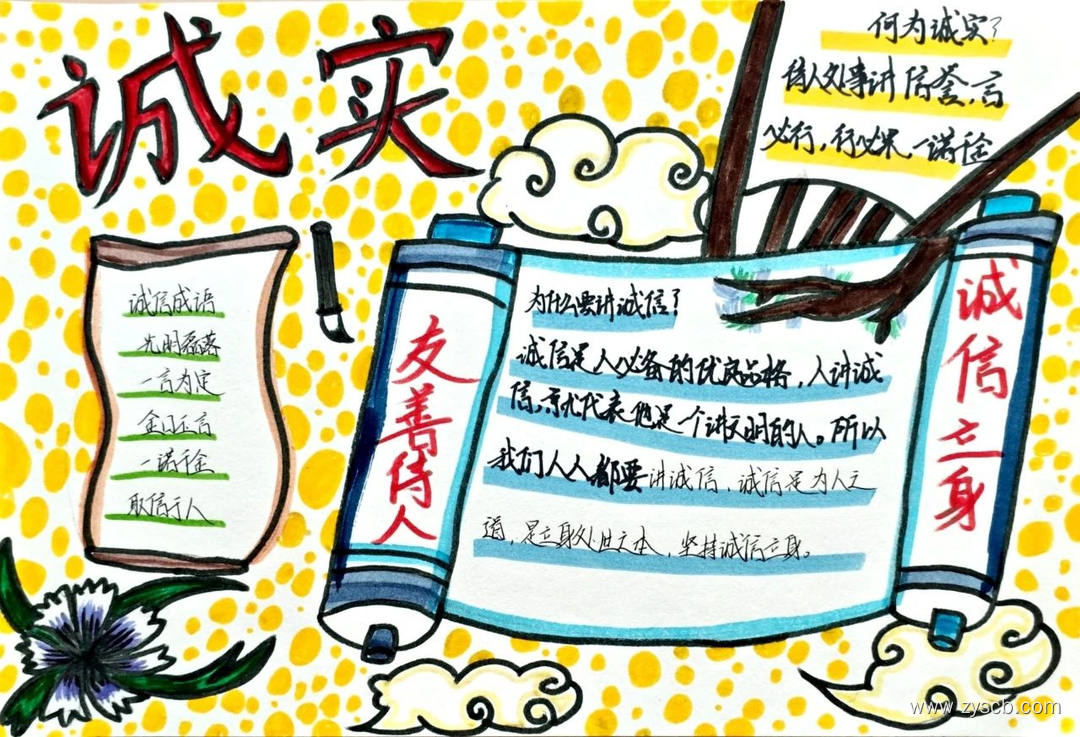 诚实
何为诚实?
待人处事讲信誉,言
必行,行必果,一诺千金
诚信成语
光明磊落
一言为定
金口玉言
一诺千金
取信于人
友善待人
为什么要讲诚信?
诚信是人必备的优良品格,人讲诚
信,京尤代表他是一个讲文明的人。所以
我们人人都要讲诚信,诚信是为人之
道,是立身处世之本,坚持诚信立身。
诚信立身
www.zyscb.com